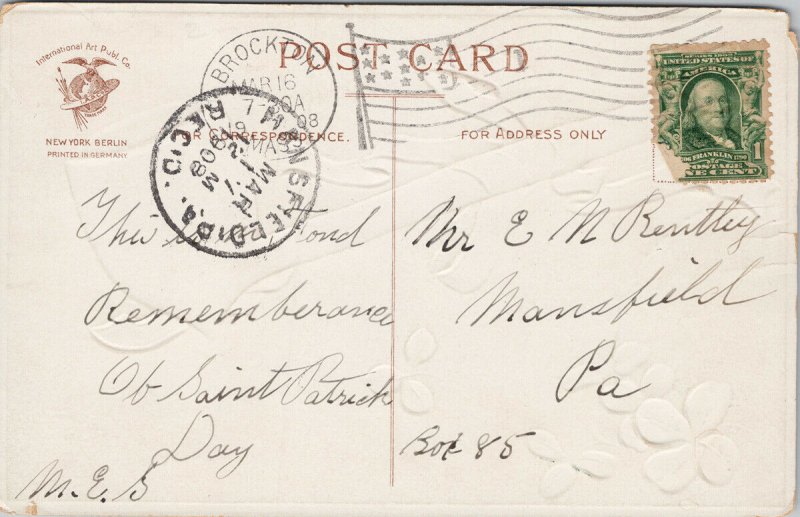 International Art Publ. Co.
NEW YORK BERLIN
PRINTED IN GERMANY
POST CARD
FOR CORRESPONDENCE.
FOR ADDRESS ONLY
BROCKTON
MAR 16
7
MASS
MANSFIELD, PA.
MAR
17
REC'D.
UNITED STATES OF
AMERICA
FRANKLIN 1790
1
ONE CENT
This is in Fond
Rememberance
Of Saint Patrick
Day
M. E. S
Mr E N Rentley
Mansfield
Pa
Box 85